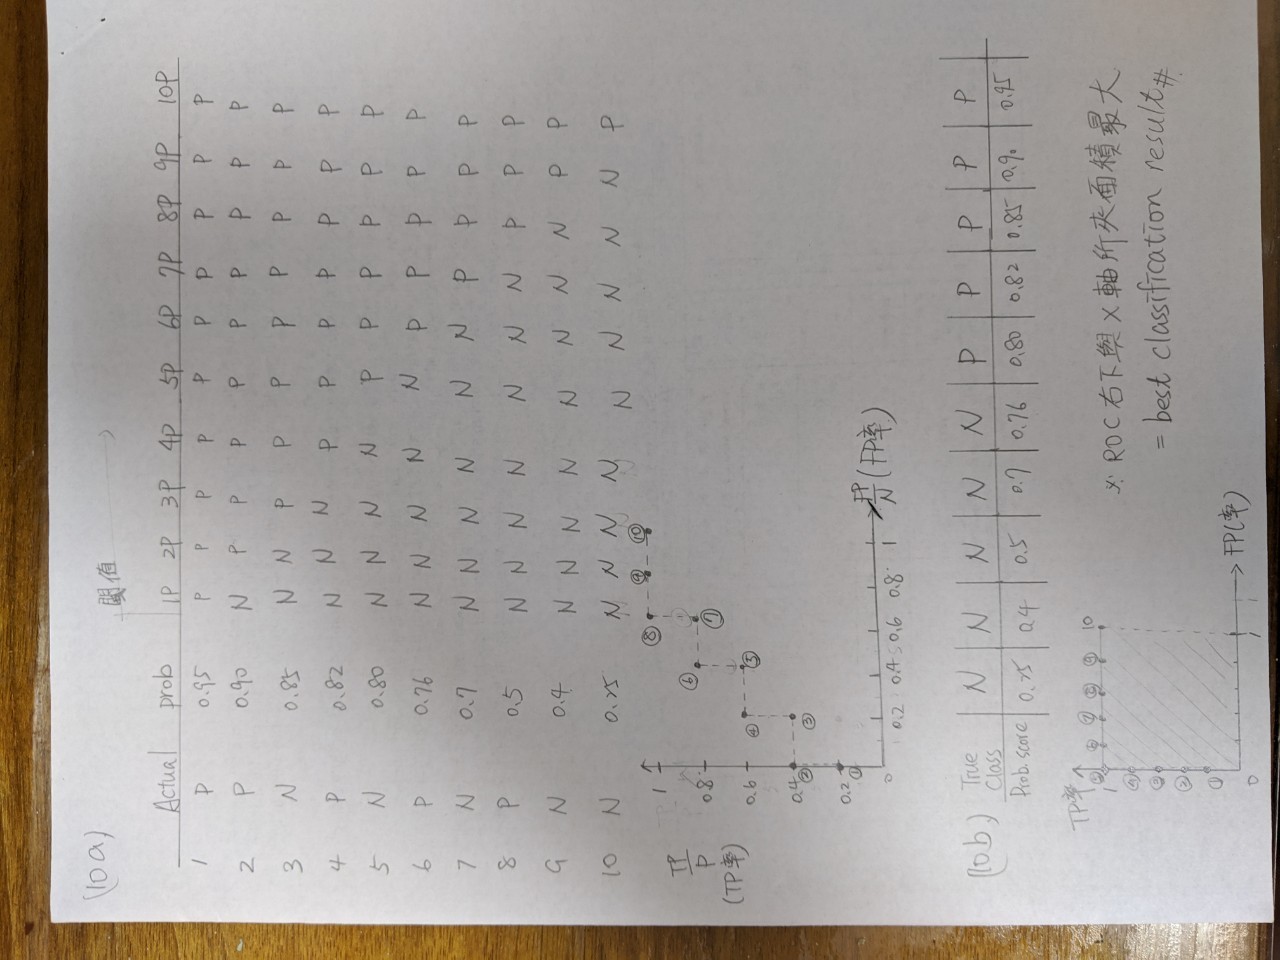 (10a)
閥值
Actual prob 1P 2P 3P 4P 5P 6P 7P 8P 9P 10P
1 P 0.95 P P P P P P P P P P
2 P 0.90 N P P P P P P P P P
3 N 0.85 N N P P P P P P P P
4 P 0.82 N N N P P P P P P P
5 N 0.80 N N N N P P P P P P
6 P 0.76 N N N N N P P P P P
7 N 0.7 N N N N N N P P P P
8 P 0.5 N N N N N N N P P P
9 N 0.4 N N N N N N N N P P
10 N 0.25 N N N N N N N N N P
TP
P
(TP率)
1
0.8
0.6
0.4
0.2
0
① ② ③ ④ ⑤ ⑥ ⑦ ⑧ ⑨ ⑩
0.2 0.4 0.6 0.8 1
FP
N (FP率)
(10b.)
True Class N N N N N P P P P P
Prob. score 0.25 0.4 0.5 0.7 0.76 0.80 0.82 0.85 0.90 0.95
TP率
⑤ ⑥ ⑦ ⑧ ⑨ 10
1
④
③
②
①
0
1
FP(率)
※ ROC右下與X軸所夾面積最大
= best classification result #